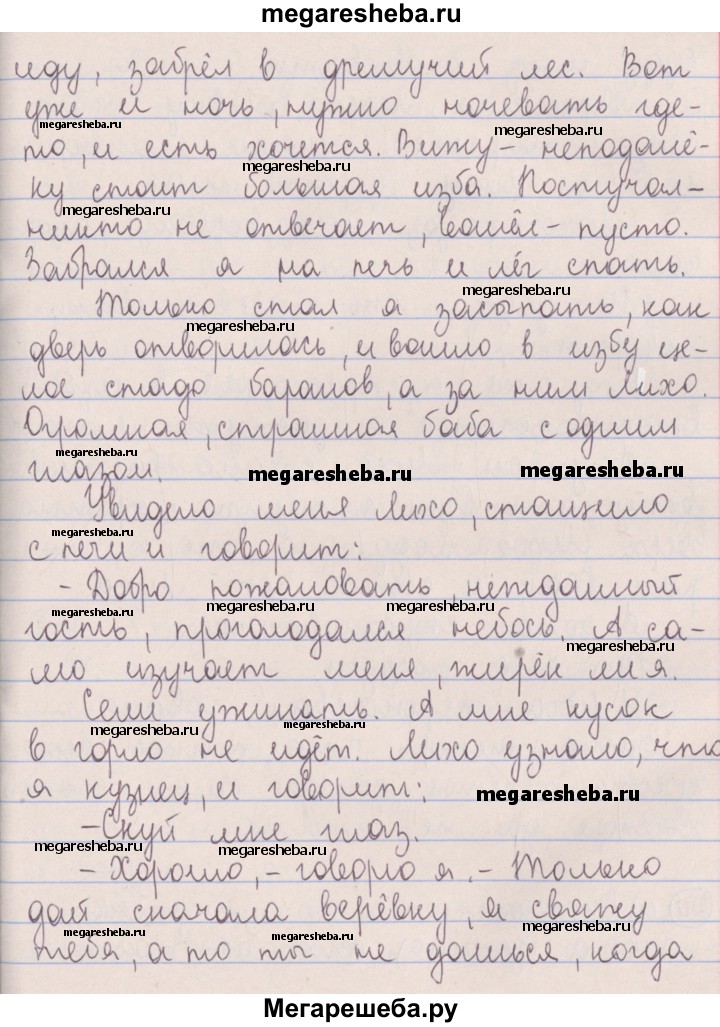 megaresheba.ru
иду, забрёл в дремучий лес. Вот
уже и ночь, нужно ночевать где-
megaresheba.ru
megaresheba.ru
то, и есть хочется. Вижу - неподалё-
megaresheba.ru
ку стоит большая изба. Постучал -
megaresheba.ru
никто не отвечает, вошёл - пусто.
Забрался я на печь и лёг спать.
megaresheba.ru
Только стал я засыпать, как
megaresheba.ru
дверь отворилась, и вошло в избу це-
лое стадо баранов, а за ним Лихо.
Огромная, страшная баба с одним
глазом.
megaresheba.ru
megaresheba.ru
Увидело меня Лихо, стащило
megaresheba.ru
с печи и говорит:
- Добро пожаловать, нежданный
megaresheba.ru
megaresheba.ru
megaresheba.ru
гость, проголодался небось. А са-
megaresheba.ru
мо изучает меня, жирен ли я.
Сели ужинать. А мне кусок
megaresheba.ru
megaresheba.ru
в горло не идёт. Лихо узнало, что
я кузнец, и говорит:
megaresheba.ru
- Скуй мне глаз.
megaresheba.ru
megaresheba.ru
- Хорошо, - говорю я, - Только
дай сначала верёвку, я свяжу
megaresheba.ru
megaresheba.ru
megaresheba.ru
тебя, а то ты не дашься, когда
Мегарешеба.ру